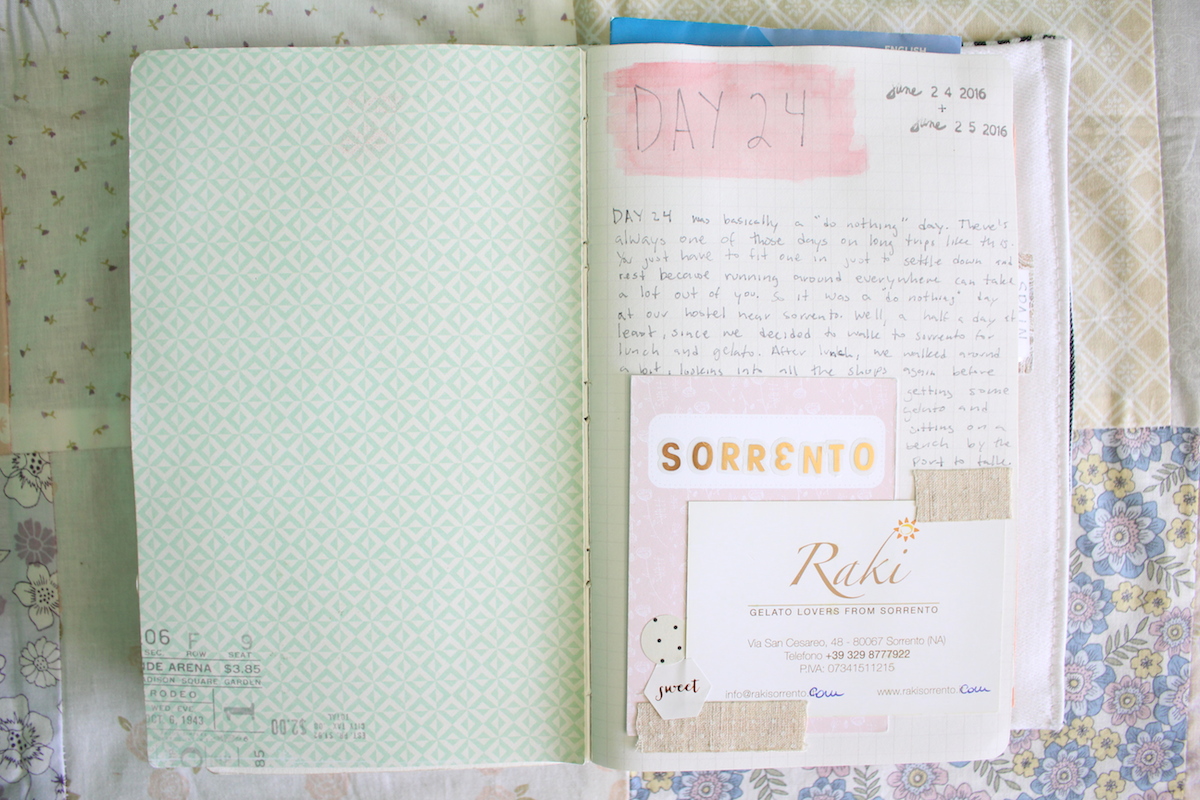 ENGLISH
DAY 24
june 24 2016
+
june 25 2016
DAY 24 was basically a "do nothing" day. There's
always one of those days on long trips like this.
You just have to fit one in just to settle down and
rest because running around everywhere can take
a lot out of you. So it was a "do nothing" day
at our hostel near sorrento. Well, a half a day at
least, since we decided to walk to sorrento for
lunch and gelato. After lunch, we walked around
a bit, looking into all the shops again before
getting some
gelato and
sitting on a
bench by the
port to talk.
SORRENTO
Raki
GELATO LOVERS FROM SORRENTO
Via San Cesareo, 48 - 80067 Sorrento (NA)
Telefono +39 329 8777922
P.IVA: 07341511215
info@rakisorrento.com www.rakisorrento.com
sweet
06 F 9
SEC. ROW SEAT
DE ARENA $3.85
DISON SQUARE GARDEN
RODEO
EVE.
6, 1943
1
$2.00
TOTAL
85